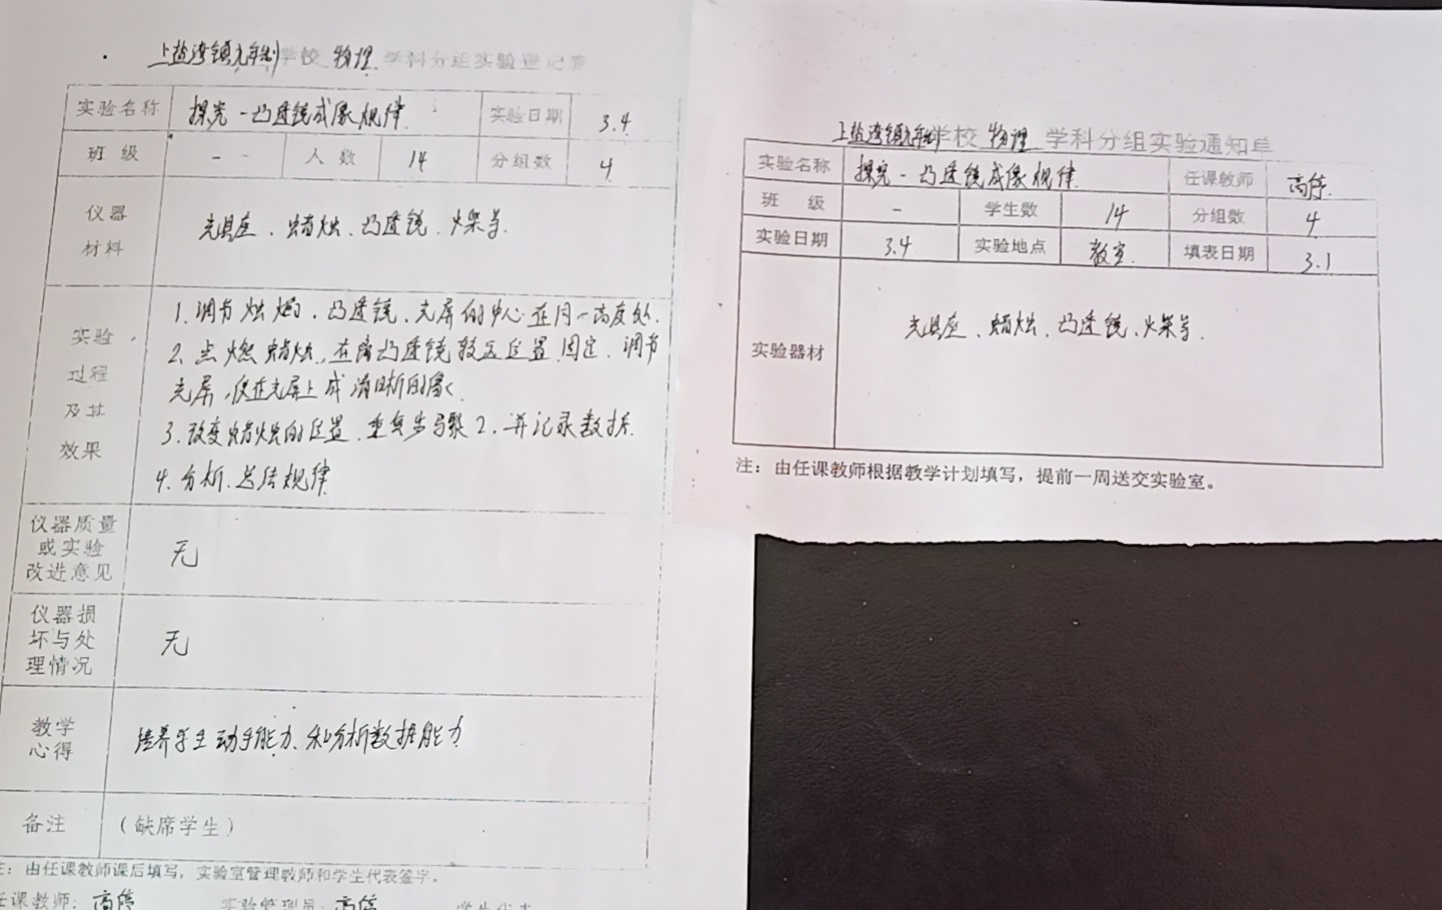 上盐湾镇九年制学校 物理 学科分组实验登记表
实验名称 探究-凸透镜成像规律 实验日期 3.4
班级 - 人数 14 分组数 4
仪器材料 光具座、蜡烛、凸透镜、火柴等.
实验过程及其效果
1.调节烛焰、凸透镜、光屏的中心在同一高度处.
2、点燃蜡烛,在离凸透镜较远位置固定、调节
光屏,使在光屏上成清晰的像.
3.改变蜡烛的位置、重复步骤2、并记录数据.
4.分析.总结规律
仪器质量或实验改进意见 无
仪器损坏与处理情况 无
教学心得 培养学生动手能力、和分析数据能力
备注 (缺席学生)
注:由任课教师课后填写,实验室管理教师和学生代表签字。
任课教师: 高 实验管理员: 高 学生代表
上盐湾镇九年制学校 物理 学科分组实验通知单
实验名称 探究-凸透镜成像规律 任课教师 高
班级 - 学生数 14 分组数 4
实验日期 3.4 实验地点 教室. 填表日期 3.1
实验器材 光具座、蜡烛、凸透镜、火柴等.
注:由任课教师根据教学计划填写,提前一周送交实验室。